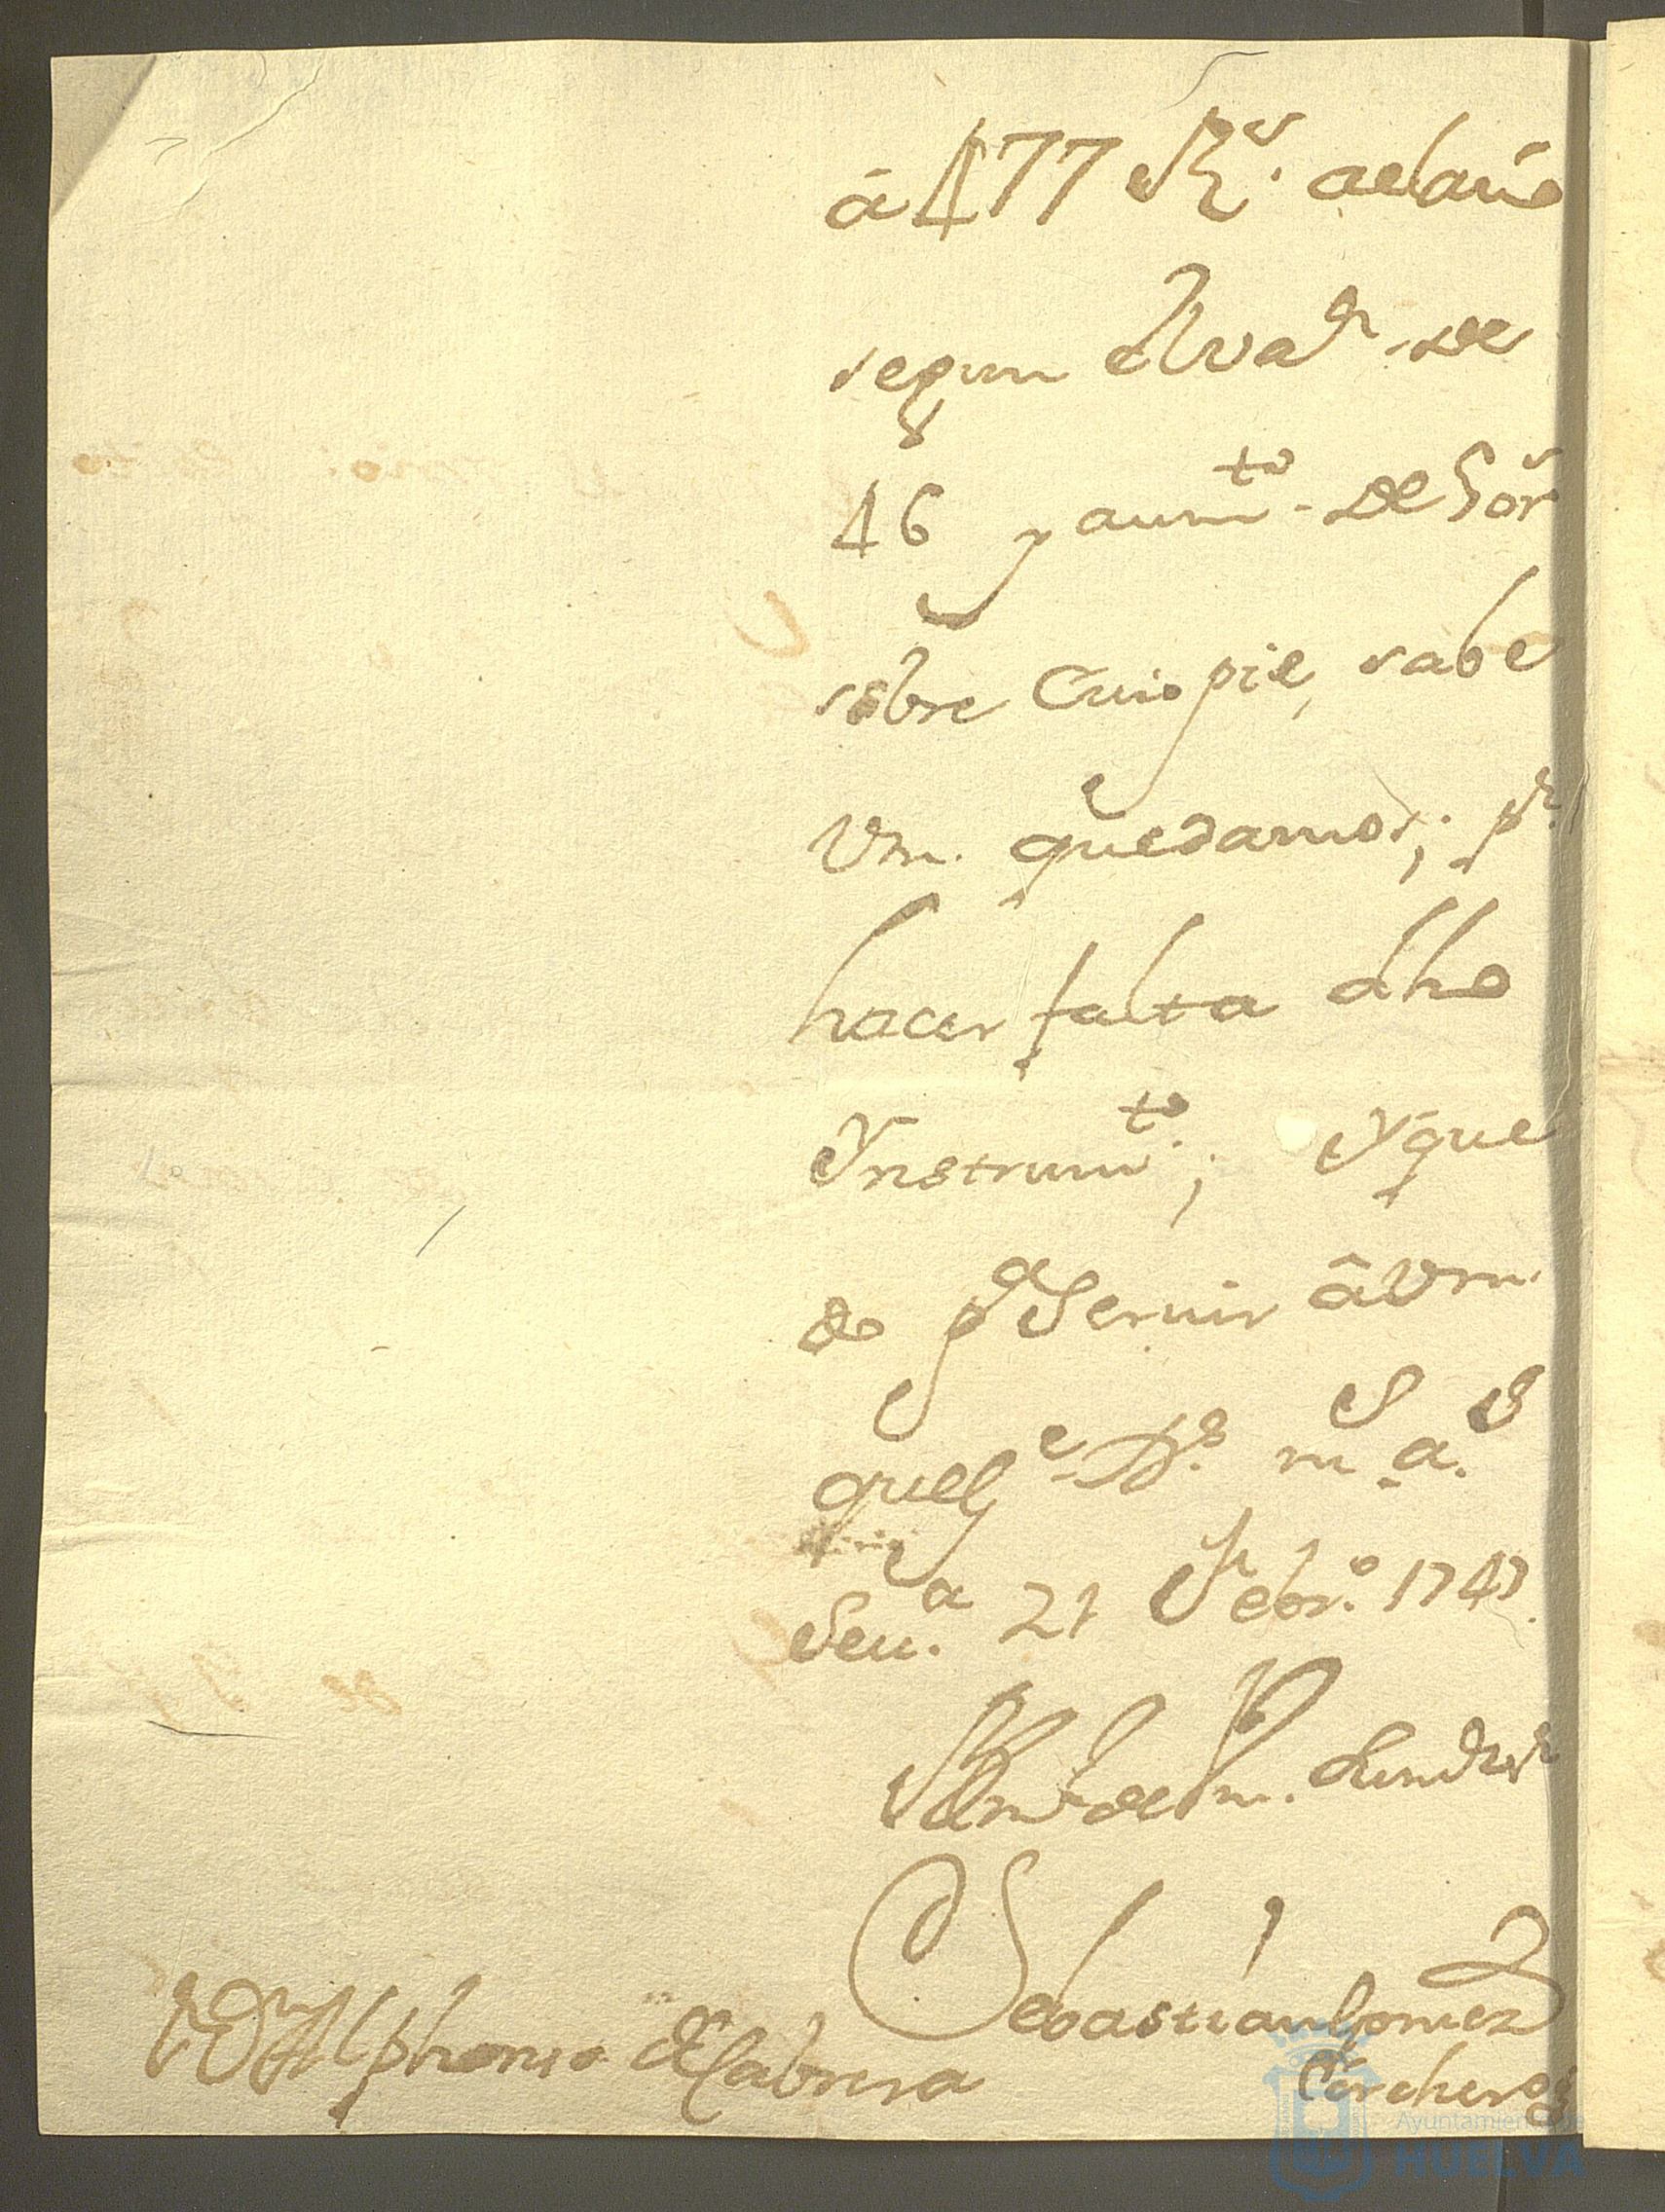 â 477 Rˢ. al año
segun Alvaˡᵃ. de
46 y aumᵗᵒ. de
sobre Cuio pie, sabe
Vm. quedamos; pʳ.
hacer falta dho
Ynstrumᵗᵒ.; Y que
do pᵃ Seruir â Vm.
que gᵉ. Dˢ. mˢ. aˢ.
Seuᵃ. 21 Febrᵒ. 1747.
BLM de Vm.
Sebastian Gomez
Corchero
Sʳ Dⁿ Alphonso de Cabrera
Ayuntamiento de
HUELVA